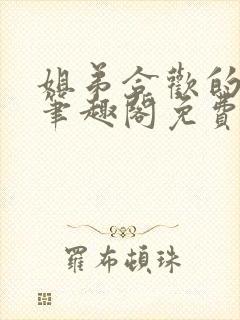 姐弟合歡的
筆趣閣免費
羅布頓珠